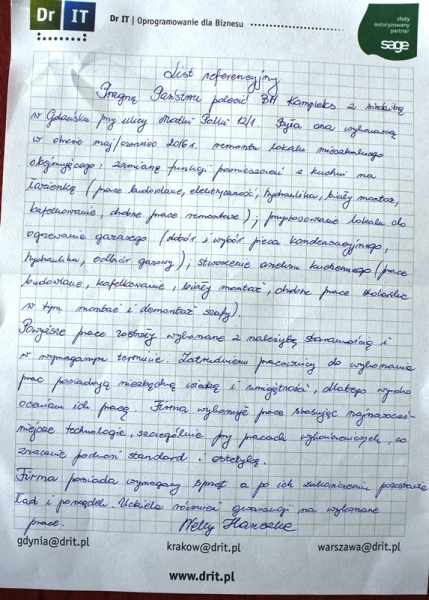 Dr IT
Dr IT | Oprogramowanie dla Biznesu
złoty
autoryzowany
partner
sage
List referencyjny
Pragnę Państwu polecić BM Kompleks z siedzibą
w Gdańsku przy ulicy Matki Polki 12/1. Była ona wykonawcą
w okresie maj/czerwiec 2016 r. remontu lokalu mieszkalnego
obejmującego: zamianę funkcji pomieszczeń z kuchni na
łazienkę (prace budowlane, elektryczność, hydraulika, biały montaż,
kafelkowanie, drobne prace remontowe); przystosowanie lokalu do
ogrzewania gazowego (dobór i wybór pieca kondensacyjnego,
hydraulika, odbiór gazowy); stworzenie aneksu kuchennego (prace
budowlane, kafelkowanie, biały montaż, drobne prace stolarskie
w tym montaż i demontaż szafy).
Powyższe prace zostały wykonane z należytą starannością i
w wymaganym terminie. Zatrudnieni pracownicy do wykonania
prac posiadają niezbędną wiedzę i umiejętności, dlatego wysoko
oceniam ich pracę. Firma wykonuje prace stosując najnowocześ-
niejsze technologie, szczególnie przy pracach wykończeniowych, co
znacznie podnosi standard i estetykę.
Firma posiada wymagany sprzęt a po ich zakończeniu pozostawia
ład i porządek. Udziela również gwarancji na wykonane
prace.
gdynia@drit.pl
krakow@drit.pl
warszawa@drit.pl
www.drit.pl